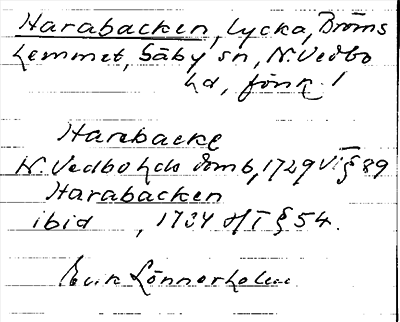 Harabacken, lycka, Bröms
hemmet, Säby sn, N. Vedbo
hd, Jönk. l
Harebacke
N. Vedbo hds domb, 1729 VI § 89
Harabacken
ibid , 1734 § 54.
Erik Lönnerholm